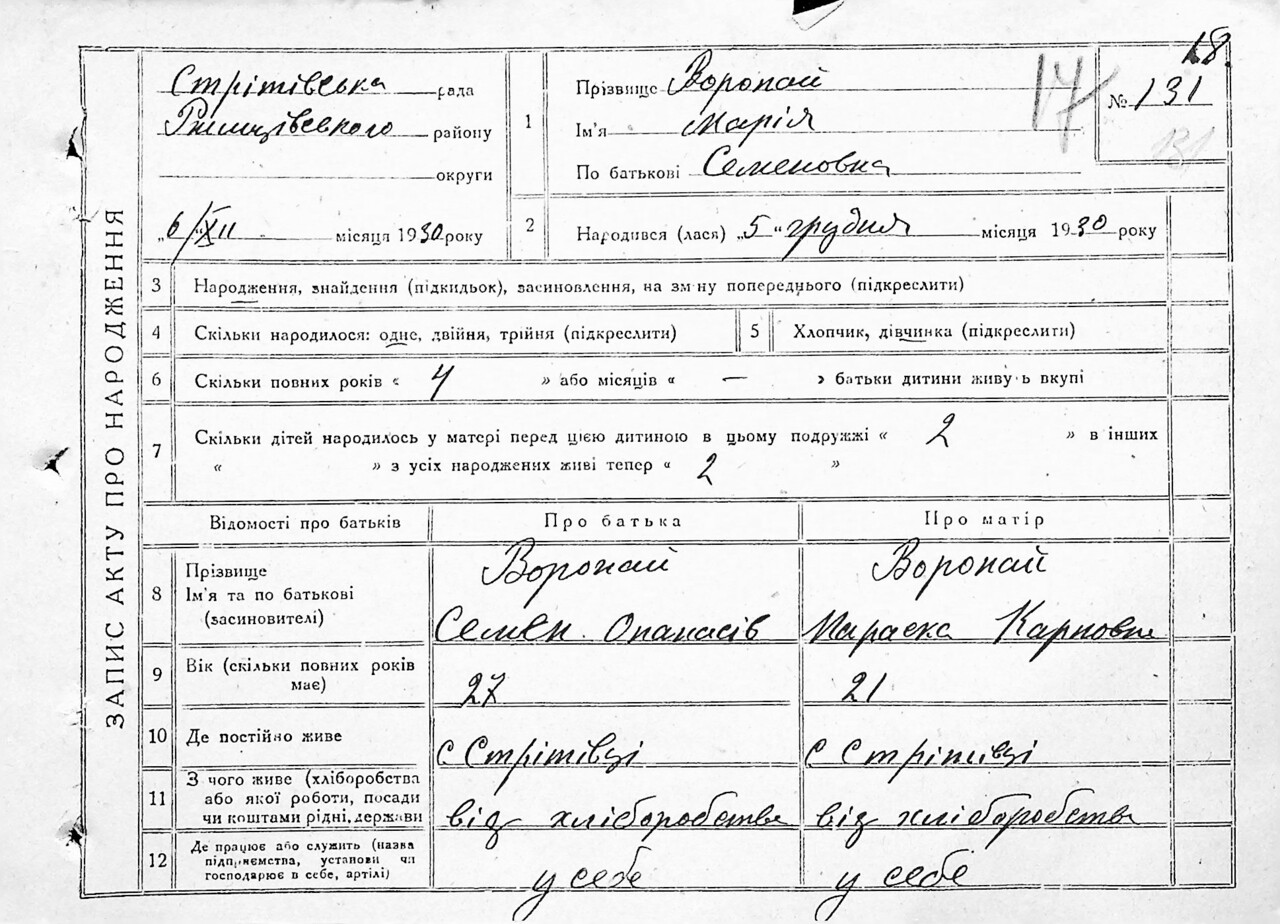 18.
17
№ 131
131
Стрітівська рада
Ржищівського району
округи
„6/XII місяця 1930 року
1
Прізвище Воропай
Ім'я Марія
По батькові Семеновна
2
Народився (лася) „5“ грудня місяця 1930 року
ЗАПИС АКТУ ПРО НАРОДЖЕННЯ
3 Народження, знайдення (підкидьок), засиновлення, на зм ну попереднього (підкреслити)
4 Скільки народилося: одне, двійня, трійня (підкреслити) 5 Хлопчик, дівчинка (підкреслити)
6 Скільки повних років « 4 » або місяців « — » батьки дитини живу ь вкупі
7 Скільки дітей народилось у матері перед цією дитиною в цьому подружжі « 2 » в інших
« » з усіх народжених живі тепер « 2 »
Відомості про батьків Про батька Про матір
8
Прізвище Воропай Воропай
Ім'я та по батькові
(засиновителі) Семен Опанасів Параска Карповна
9 Вік (скільки повних років
має) 27 21
10 Де постійно живе с Стрітівці с Стрітівці
11 З чого живе (хліборобства
або якої роботи, посади
чи коштами рідні, держави від хліборобства від хліборобства
12 Де працює або служить (назва
підприємства, установи чи
господарює в себе, артілі) у себе у себе